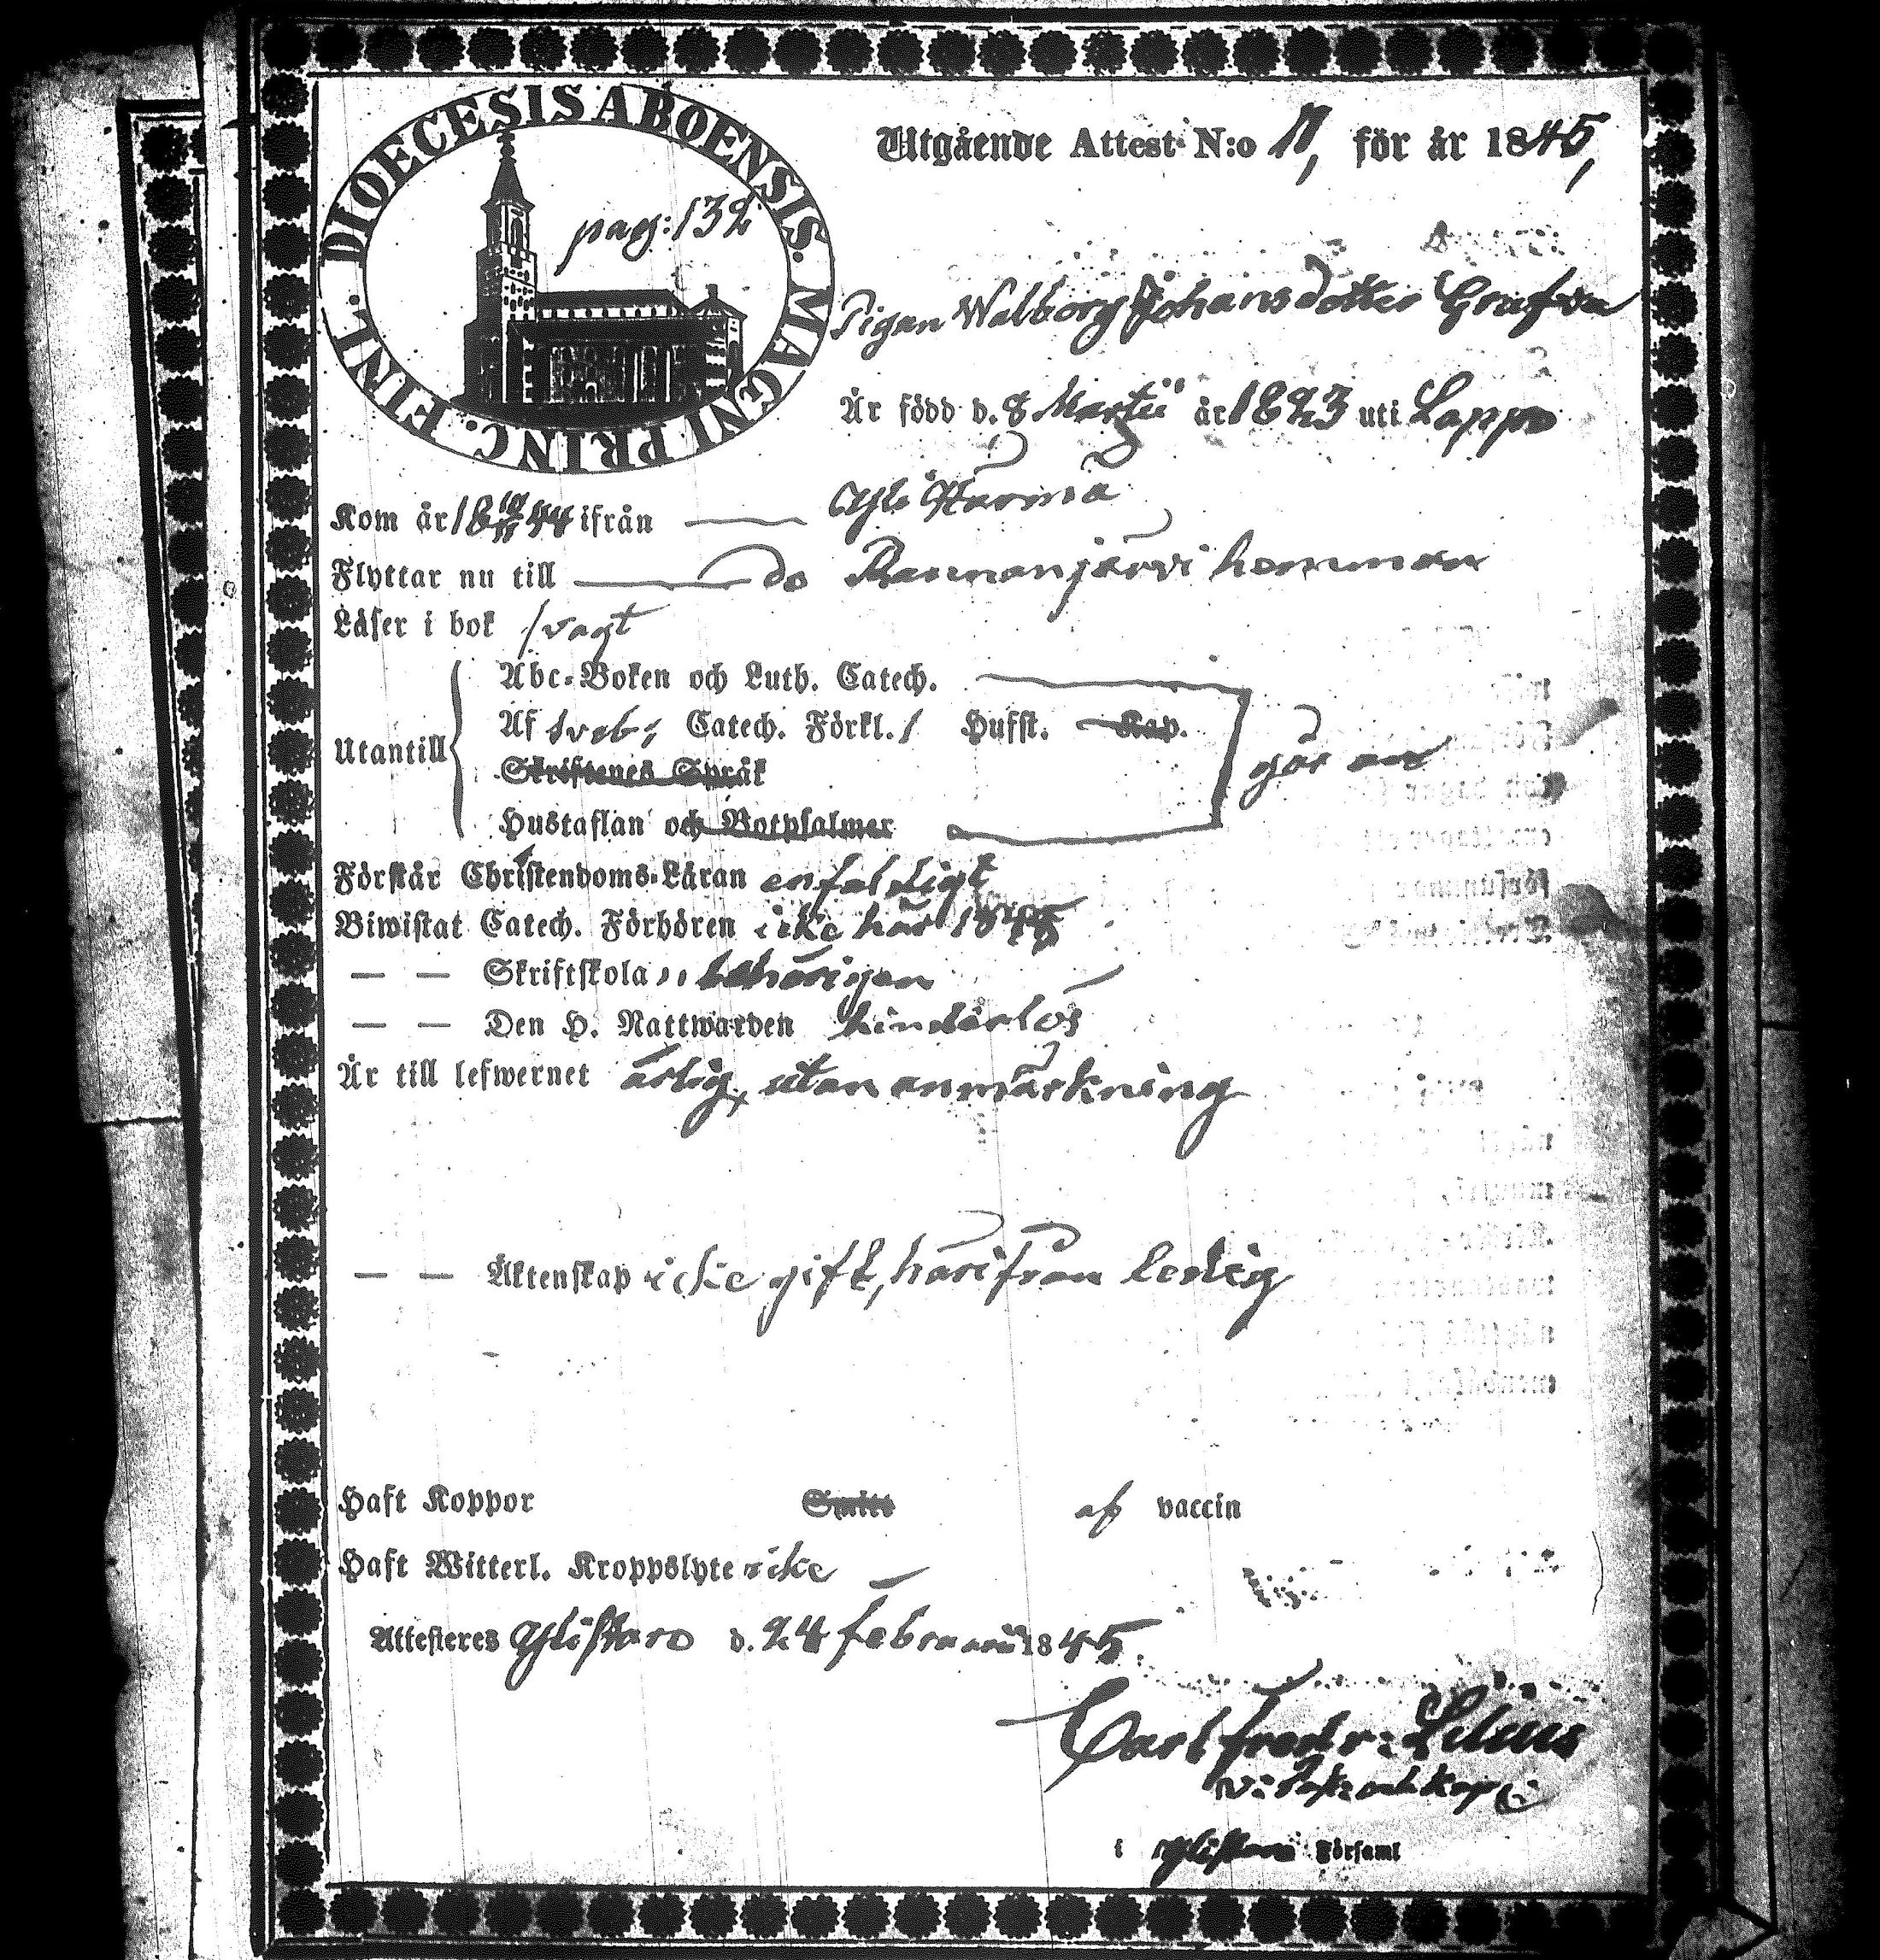 DIOECESIS ABOENSIS. MAGNI PRINC. FINL.
pag: 132
Utgående Attest N:o 11, för år 1845,
Pigan Walborg Johansdotter Grafwa
Är född d. 8 Martii år 1823 uti Lappo
Kom år 18 44 ifrån Yli Härmä
Flyttar nu till do hemman
Läser i bok svagt
Utantill
Abc-Boken och Luth. Catech.
Af sveb: Catech. Förkl. / Hufst. Kap.
Skriftenes Språk
Hustaflan och Botpsalmer
går an
Förstår Christendoms-Läran enfaldigt
Biwistat Catech. Förhören icke här 1845
— — Skriftskola behörigen
— — Den H. Nattwarden hinderlös
Är till lefwernet ärlig, utan anmärkning
— — Äktenskap icke gift, härifrån ledig
Haft Koppor Smitt af vaccin
Haft Witterl. Kroppslyte icke
Attesteras Ylistaro d. 24 februarii 1845.
Carl Fredr: Lilius
v: Past: och Kap:
i Ylistaro Församl